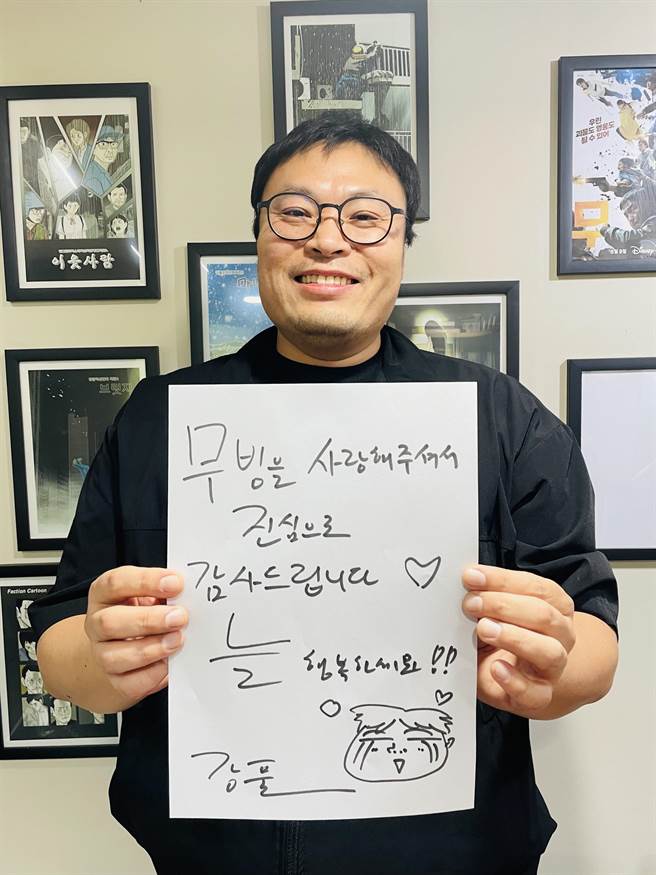 이웃사람
우린
괴물도 영웅도
될 수 있어
무
Disney
브릿지
Faction Cartoon
무빙을 사랑해주셔서
진심으로
감사드립니다 ♡
늘 행복하세요!!
강풀